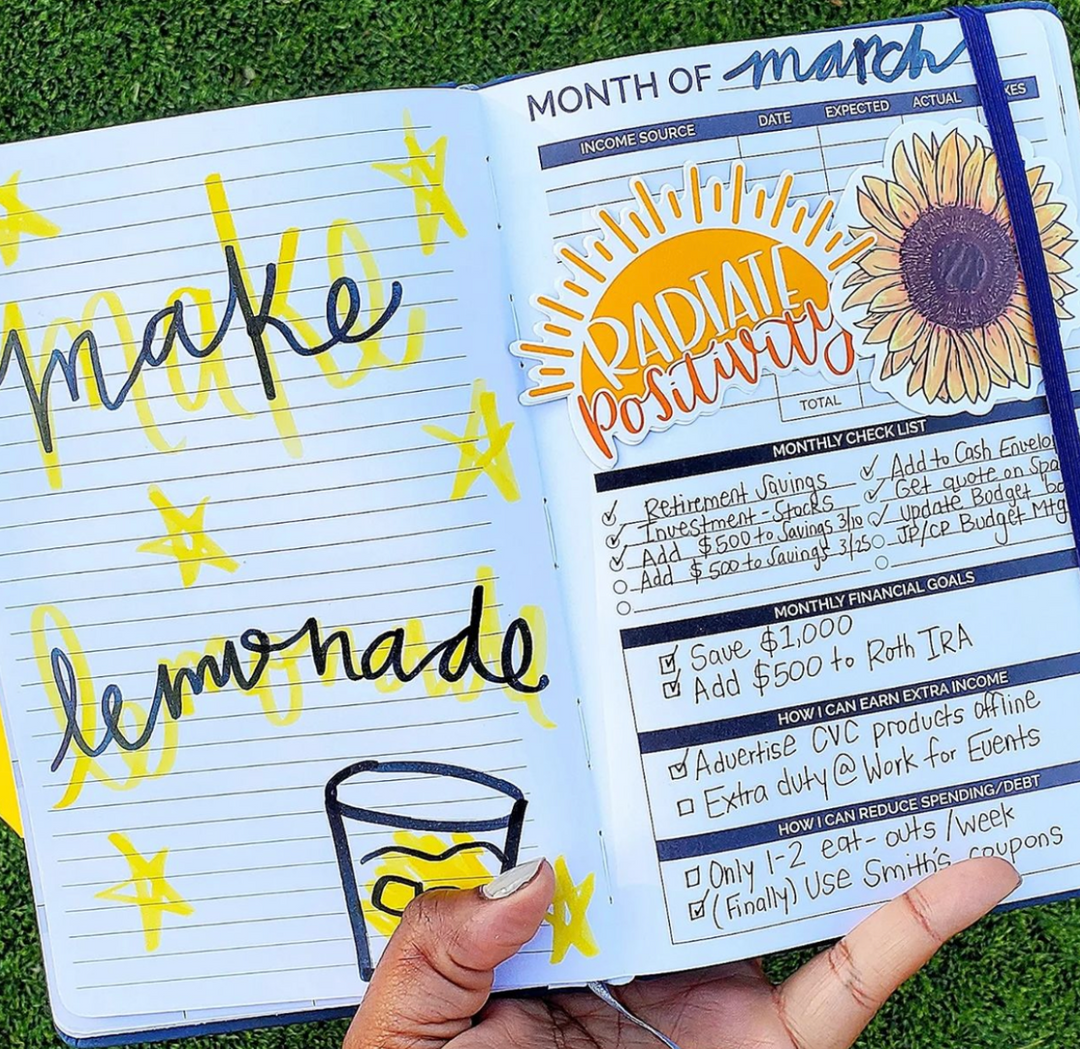 make
lemonade
MONTH OF march
INCOME SOURCE DATE EXPECTED ACTUAL
RADIATE
positivity
TOTAL
MONTHLY CHECK LIST
Retirement Savings
Investment - Stocks
Add $500 to Savings 3/10
Add $500 to Savings 3/25
Add to Cash
Get quote on
Update Budget
JP/CP Budget Mtg
MONTHLY FINANCIAL GOALS
Save $1,000
Add $500 to Roth IRA
HOW I CAN EARN EXTRA INCOME
Advertise CVC products offline
Extra duty @ Work for Events
HOW I CAN REDUCE SPENDING/DEBT
Only 1-2 eat-outs /week
(Finally) Use Smith's coupons